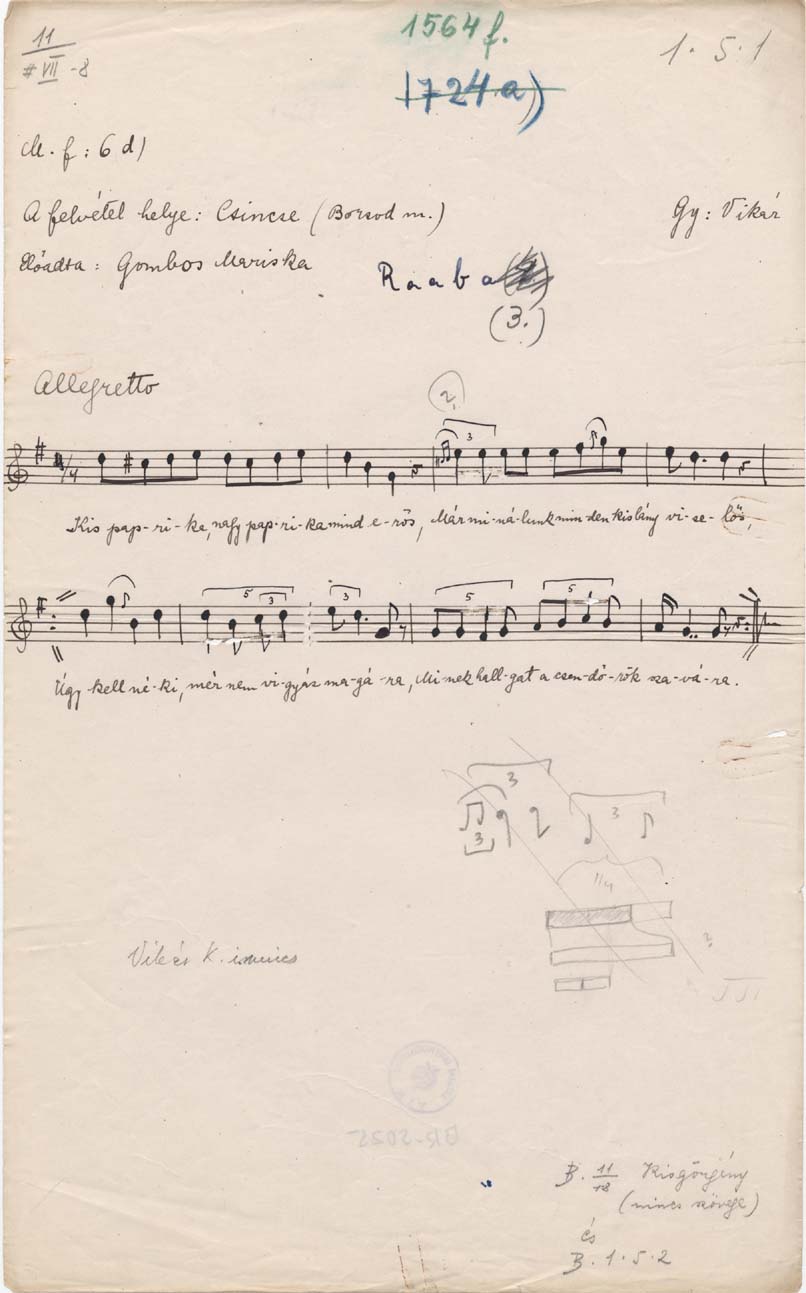 11
# VII - 8
1564 f.
1724 a)
1. 5. 1
M. f: 6 d)
A felvétel helye: Csincse (Borsod m.)
Gy: Vikár
Előadta: Gombos Mariska
Raaba
(3.)
Allegretto
2.
3
4/4
Kis pap-ri-ka, nagy pap-ri-ka mind e-rős, Már mi-ná-lunk min-den kislány vi-se-lős,
5 3 3 5 5
Úgy kell né-ki, mér nem vi-gyáz ma-gá-ra, Mi-nek hall-gat a csen-dő-rök sza-vá-ra.
3
3
3
?
Vikár K. nincs
BR-2052
B. 11/18 Kisgörgény
(nincs szövege)
és
B. 1. 5. 2